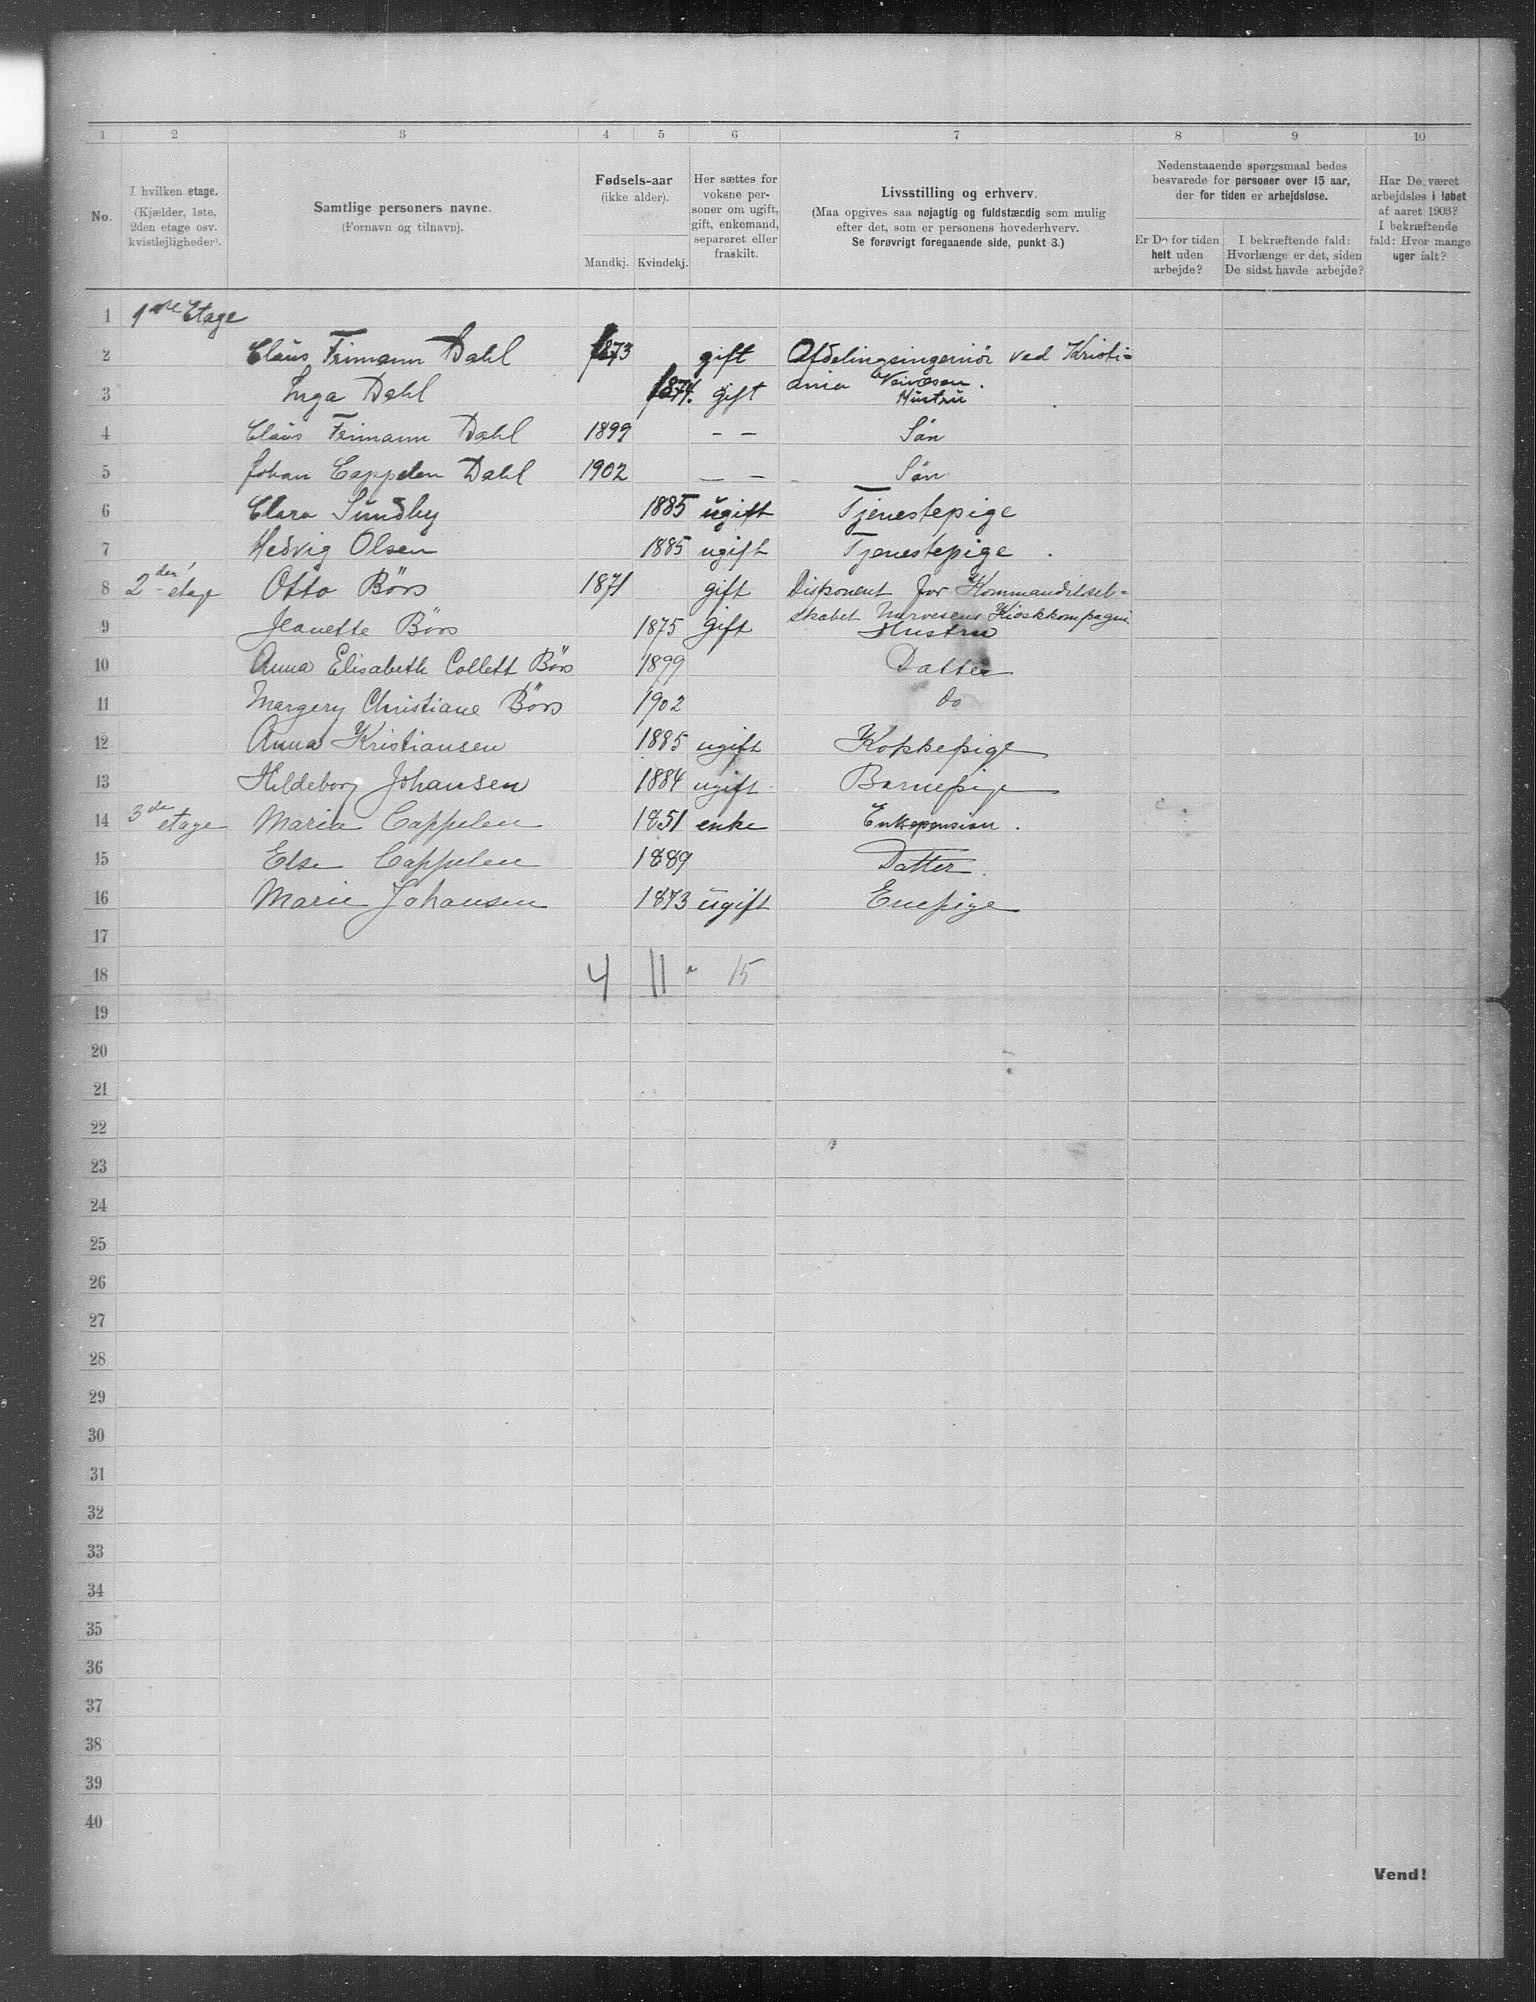 1 2 3 4 5 6 7 8 9 10
No.
I hvilken etage.
(Kjælder, 1ste,
2den etage osv.
kvistlejligheder).
Samtlige personers navne.
(Fornavn og tilnavn).
Fødsels-aar
(ikke alder).
Mandkj. Kvindekj.
Her sættes for
voksne per-
soner om ugift,
gift, enkemand,
separeret eller
fraskilt.
Livsstilling og erhverv.
(Maa opgives saa nøjagtig og fuldstændig som mulig
efter det, som er personens hovederhverv.
Se forøvrigt foregaaende side, punkt 3.)
Nedenstaaende spørgsmaal bedes
besvarede for personer over 15 aar,
der for tiden er arbejdsløse.
Er De for tiden
helt uden
arbejde?
I bekræftende fald:
Hvorlænge er det, siden
De sidst havde arbejde?
Har De været
arbejdsløs i løbet
af aaret 1903?
I bekræftende
fald: Hvor mange
uger ialt?
1 1ste Etage
2 Claus Frimann Dahl 1873 gift Afdelingsingeniör ved Kristi-
ania Veivæsen.
3 Inga Dahl 1874. gift Hustru
4 Claus Frimann Dahl 1899 – – Sön
5 Johan Cappelen Dahl 1902 – – Sön
6 Clara Sundby 1885 ugift Tjenestepige
7 Hedvig Olsen 1885 ugift Tjenestepige .
8 2den etage Otto Börs 1871 gift Disponent for Kommanditsel-
skabet Narvesens Kioskkompagni
9 Jeanette Börs 1875 gift Hustru
10 Anna Elisabeth Collett Börs 1899 Datter
11 Margery Christiane Börs 1902 do
12 Anna Kristiansen 1885 ugift Kokkepige
13 Hildeborg Johansen 1884 ugift Barnepige
14 3de etage Maria Cappelen 1851 enke Enkepension .
15 Else Cappelen 1889 Datter.
16 Marie Johansen 1873 ugift Enepige
17
18 4 11 " 15
19
20
21
22
23
24
25
26
27
28
29
30
31
32
33
34
35
36
37
38
39
40
Vend!